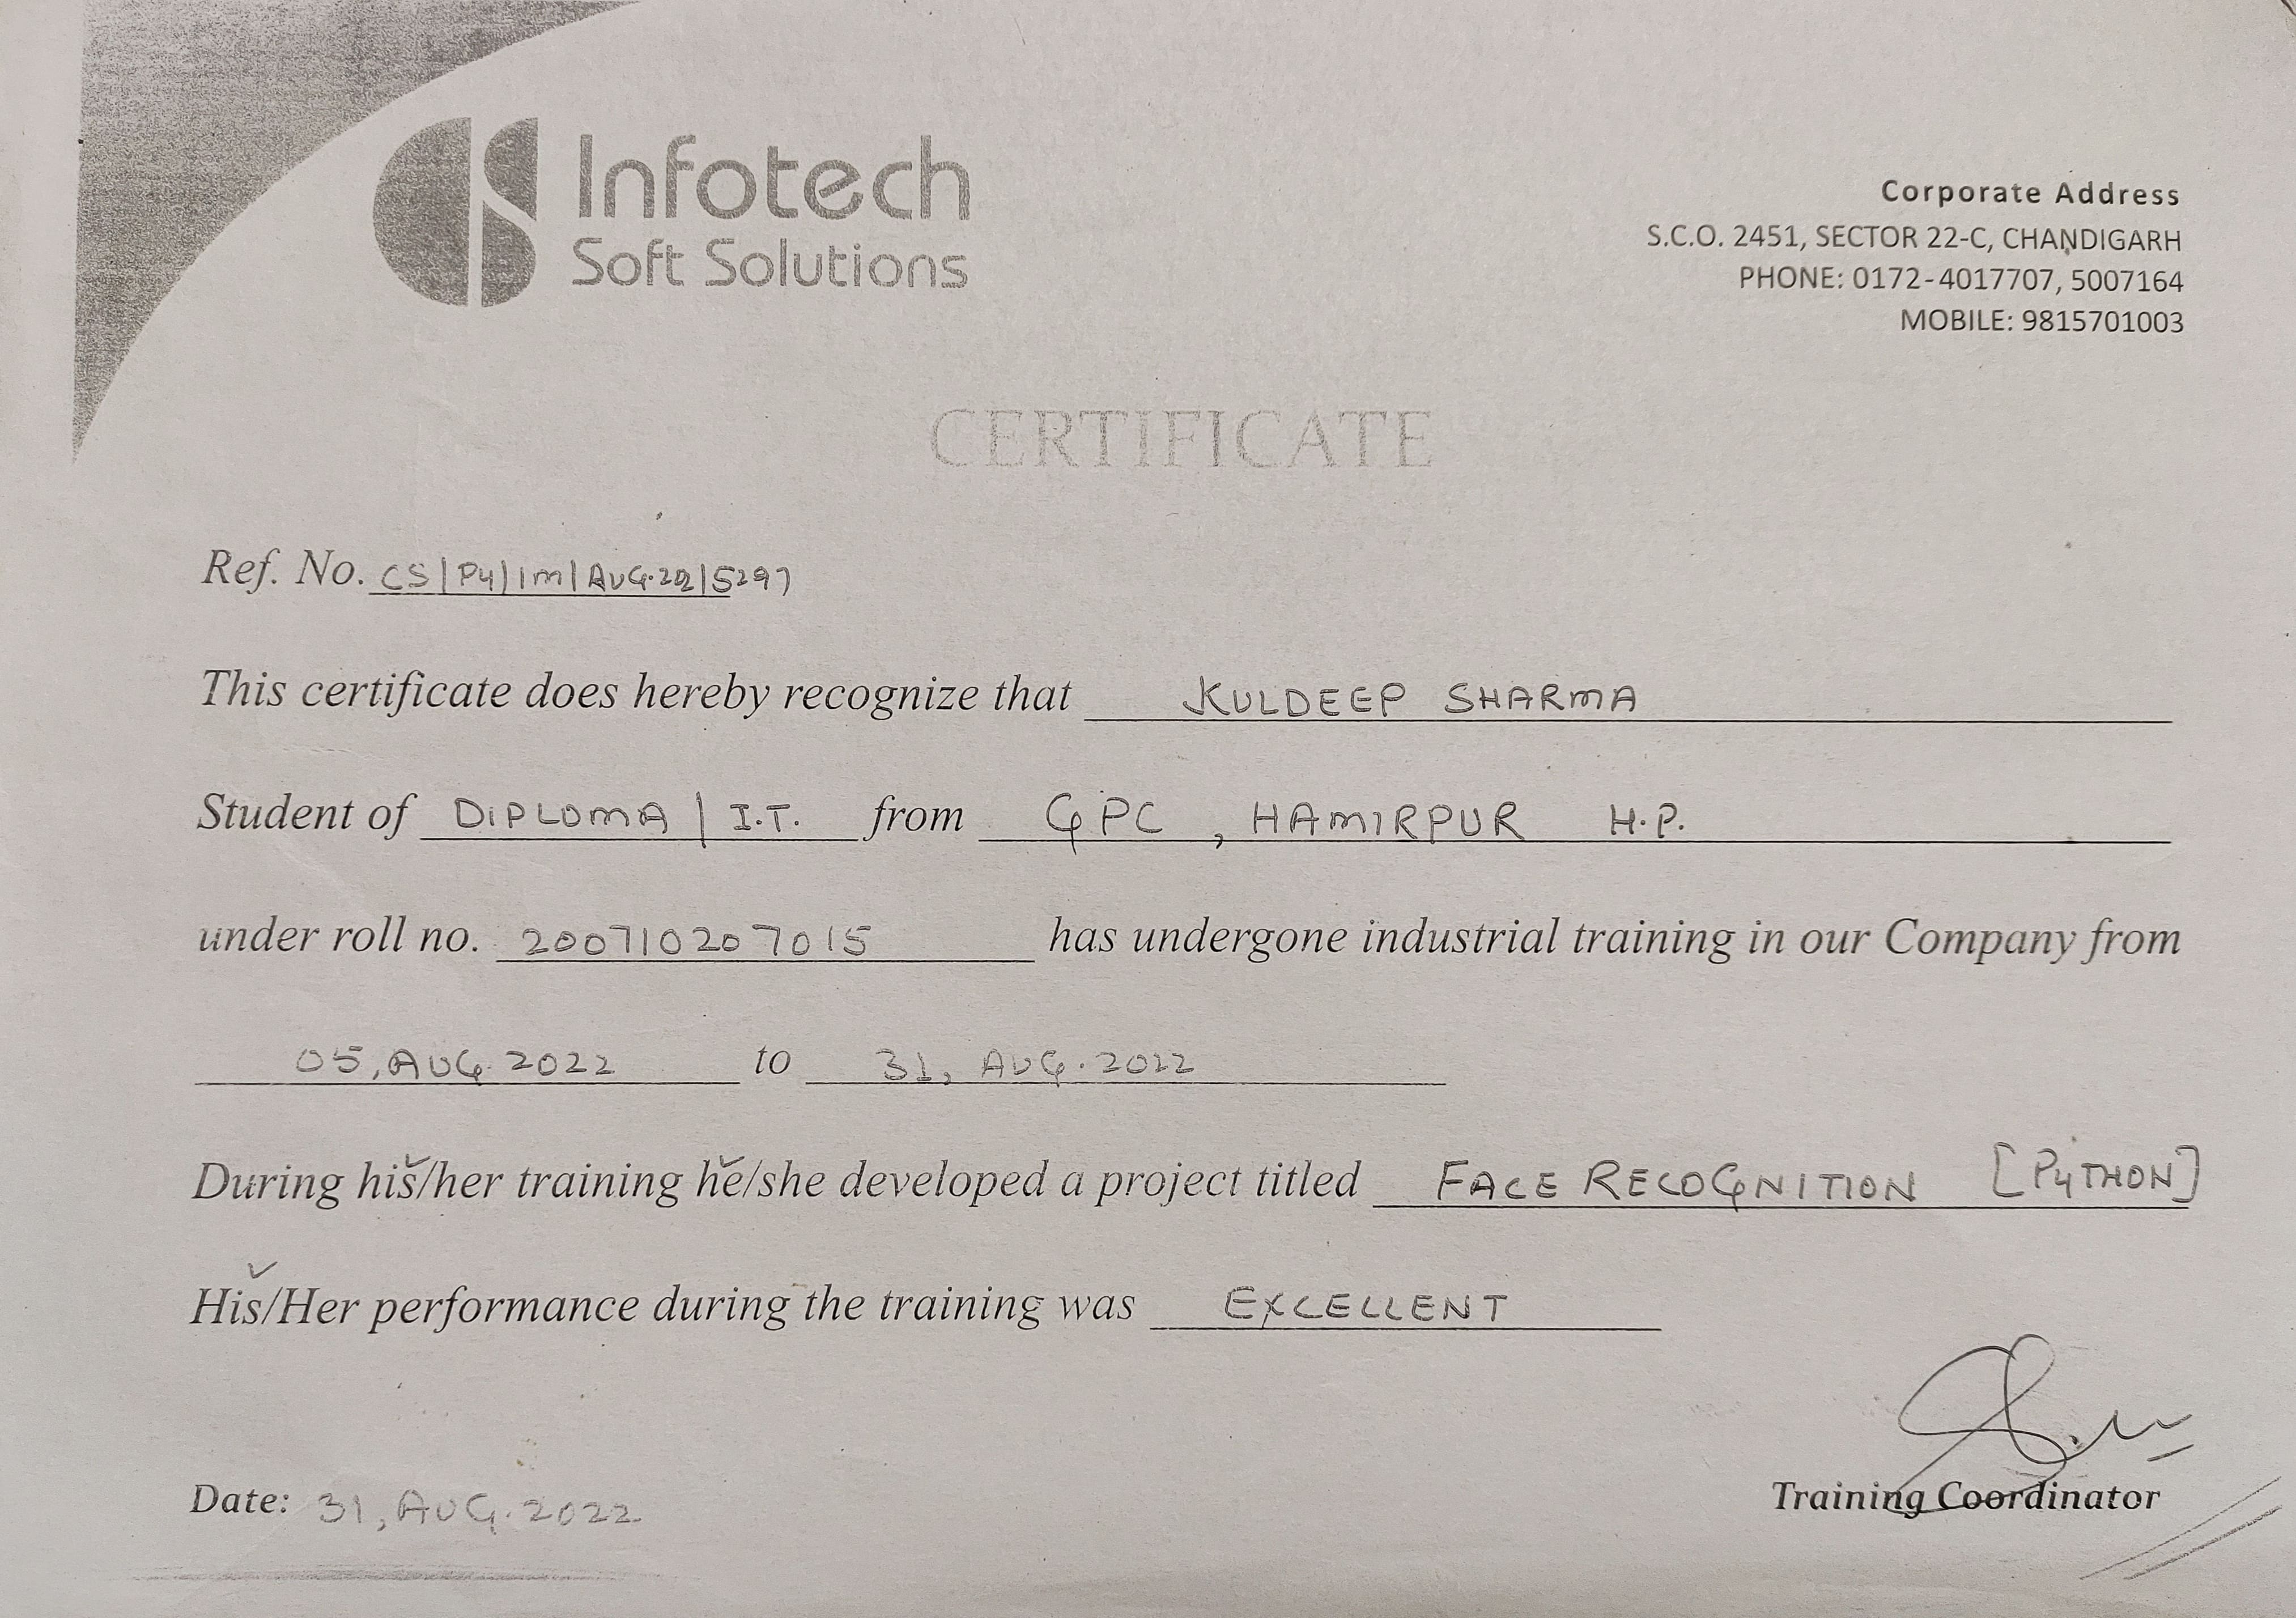 CS Infotech
Soft Solutions
Corporate Address
S.C.O. 2451, SECTOR 22-C, CHANDIGARH
PHONE: 0172-4017707, 5007164
MOBILE: 9815701003
CERTIFICATE
Ref. No. CS|PY|1M|AUG.22|5297
This certificate does hereby recognize that KULDEEP SHARMA
Student of DIPLOMA | I.T. from GPC, HAMIRPUR H.P.
under roll no. 200710207015 has undergone industrial training in our Company from
05, AUG. 2022 to 31, AUG. 2022
During his/her training he/she developed a project titled FACE RECOGNITION [PYTHON]
His/Her performance during the training was EXCELLENT
Training Coordinator
Date: 31, AUG. 2022